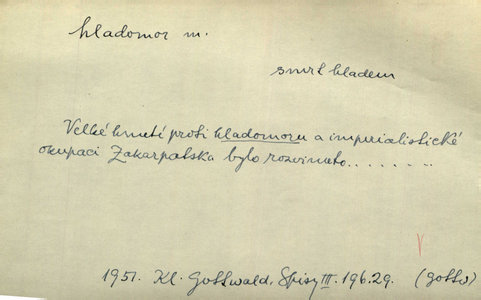 hladomor m.
smrt hladem
Velké hnutí proti hladomoru a imperialistické
okupaci Zakarpatska bylo rozvinuto........
1951. Kl. Gottwald, Spisy III. 196.29. (Gottw)